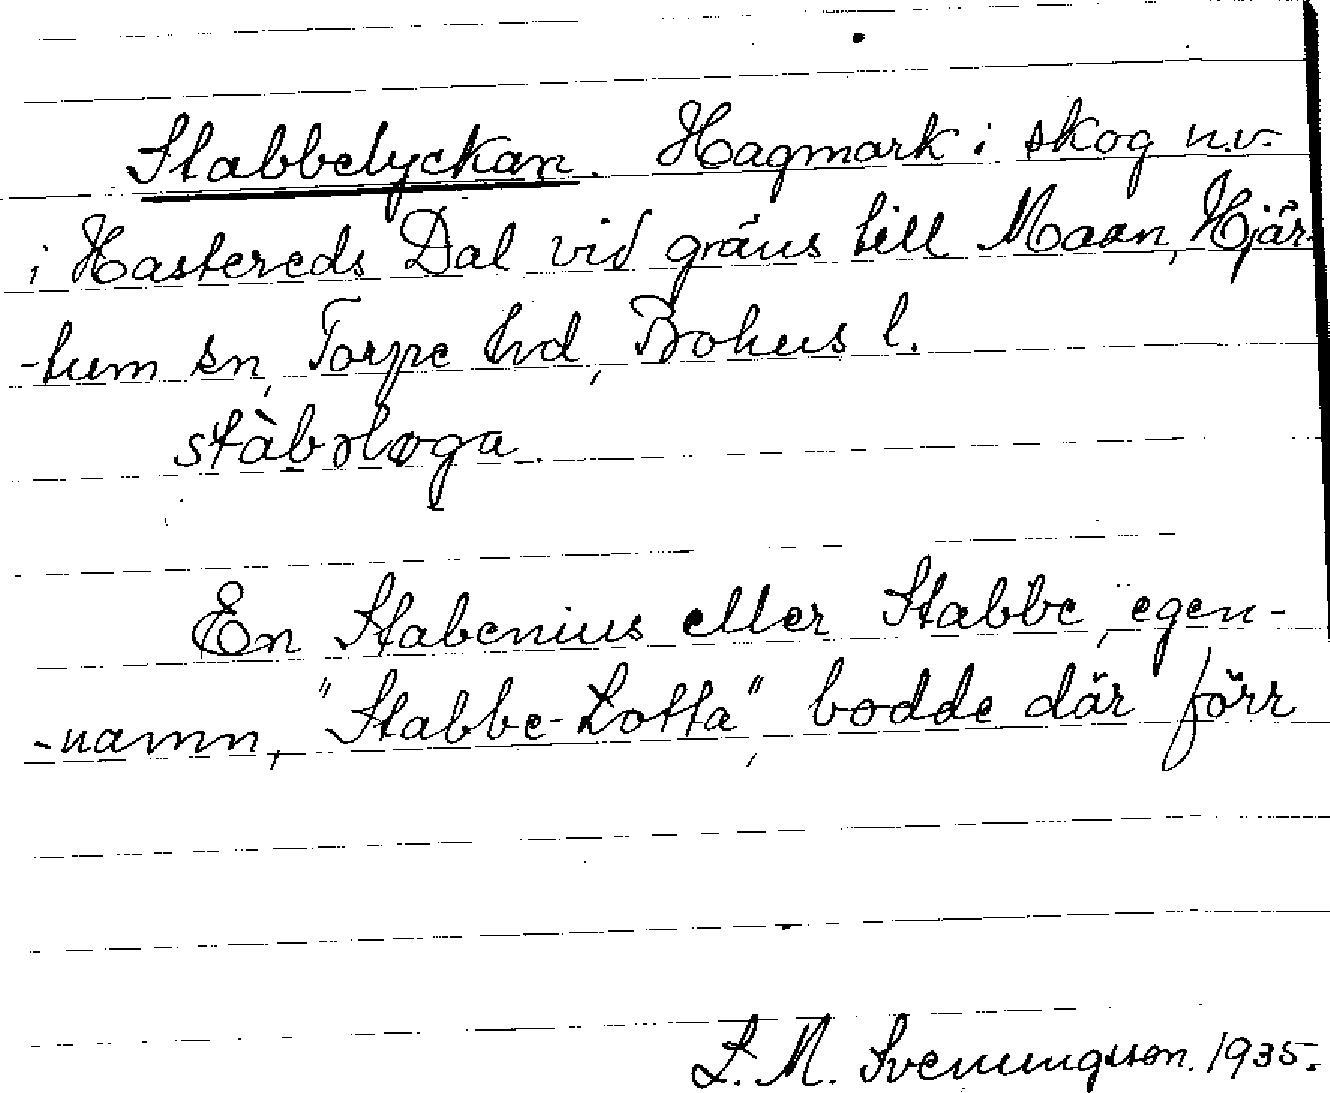 Stabbelyckan. Hagmark i skog n.v.
i Hastereds Dal vid gräns till Moan, Hjär-
-tum sn, Torpe hd, Bohus l.
stàbəløga
En Stabenius eller Stabbe, egen-
-namn, "Stabbe-Lotta", bodde där förr
L. M. Svenungsson. 1935.